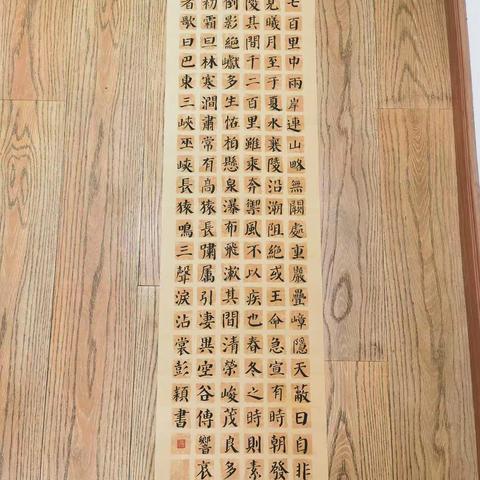 七百里中兩岸連山略無闕處重巖疊嶂隱天蔽日自非
見曦月至于夏水襄陵沿溯阻絕或王命急宣有時朝發
陵其間千二百里雖乘奔禦風不以疾也春冬之時則素
倒影絕巘多生怪柏懸泉瀑布飛漱其間清榮峻茂良多
初霜旦林寒澗肅常有高猿長嘯属引淒異空谷傳響哀
者歌曰巴東三峽巫峽長猿鳴三聲淚沾裳彭穎書